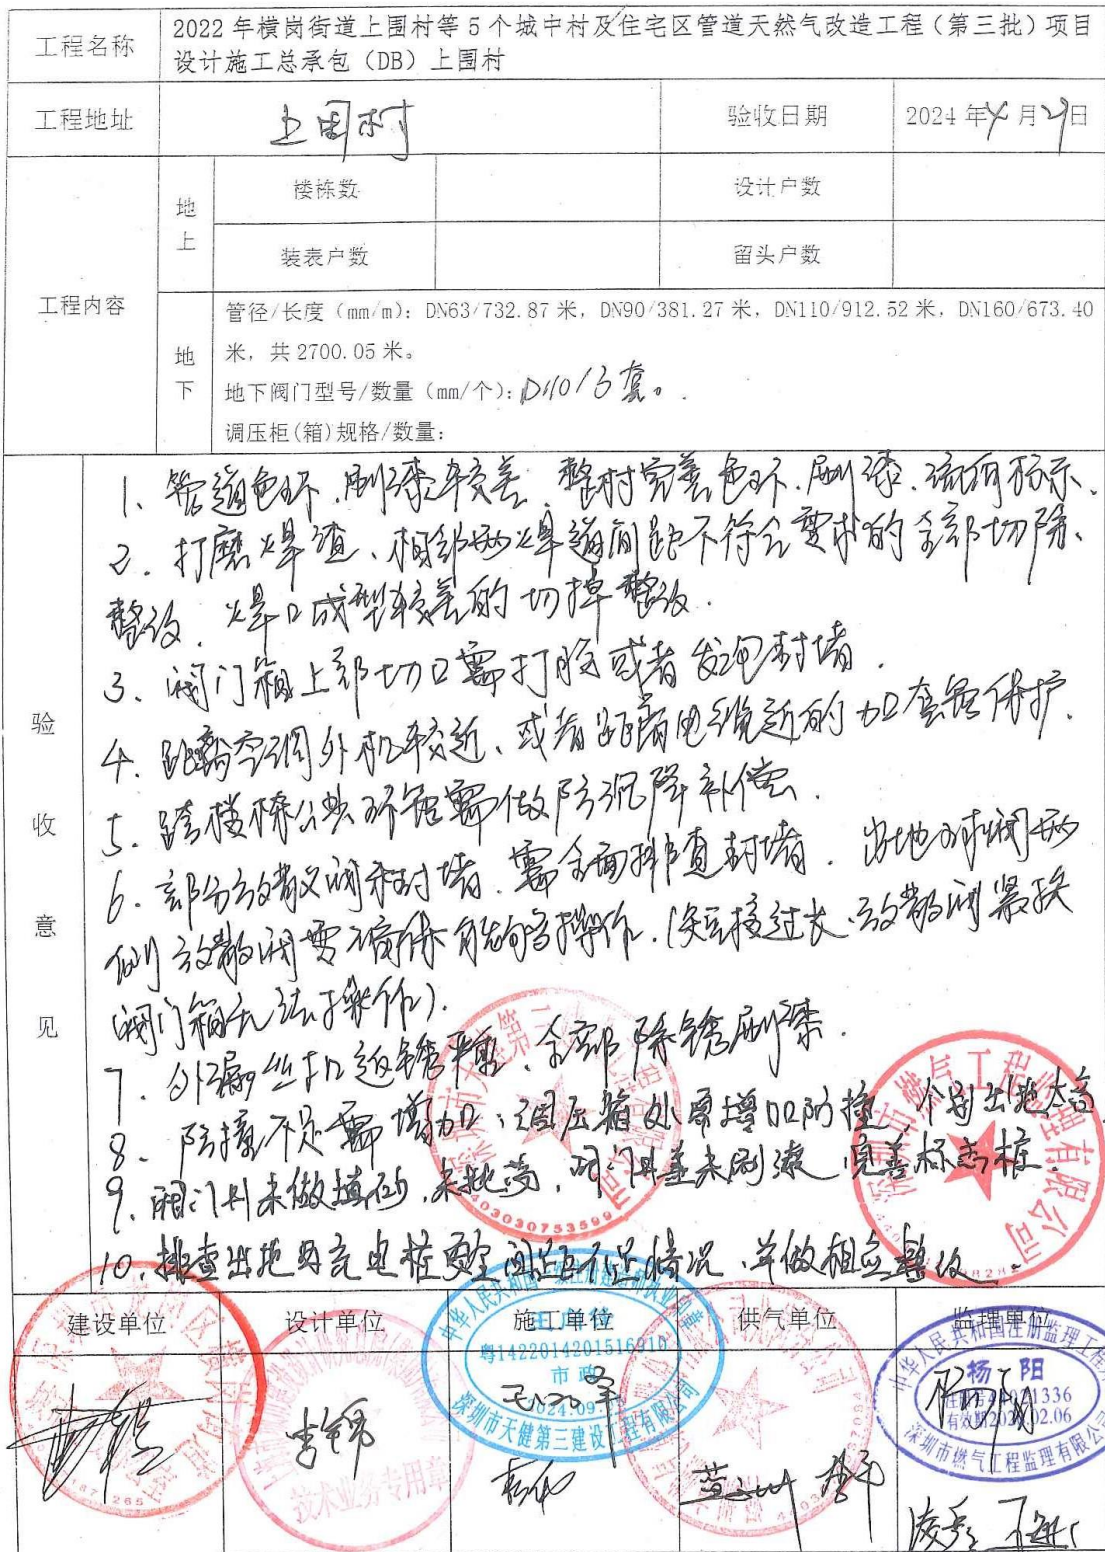 工程名称
2022 年横岗街道上围村等 5 个城中村及住宅区管道天然气改造工程（第三批）项目
设计施工总承包（DB）上围村
工程地址
上围村
验收日期
2024 年 4 月 29 日
工程内容
地上
楼栋数
设计户数
装表户数
留头户数
地下
管径/长度（mm/m）：DN63/732.87 米，DN90/381.27 米，DN110/912.52 米，DN160/673.40
米，共 2700.05 米。
地下阀门型号/数量（mm/个）：
调压柜(箱)规格/数量：
验收意见
1、管道色环、刷漆较差、整村完善色环、刷漆、流向标示、
2、打磨焊渣、相邻两焊道间距不符合要求的全部切除、
整改、焊口成型较差的切掉整改.
3、阀门箱上部切口需打胶或者发泡封堵.
4、距离空调外机较近、或者距离电缆近的加套管保护.
5、跨楼栋公共环管需做防沉降补偿.
6、部分放散阀未封堵、需全面排查封堵. 出地球阀两
侧放散阀要确保能够操作.(短接过长、放散阀紧挨
阀门箱无法操作).
7、外漏丝扣返锈严重、全部除锈刷漆.
8、防撞不足需增加；调压箱处需增加防撞、个别出地太高
9、阀门井未做填砂、阀门井盖未刷漆、完善标志桩.
10、排查出地与充电桩安全间距不足情况、并做相应整改.
建设单位
设计单位
施工单位
供气单位
监理单位
技术业务专用章
粤1422014201516910
市政
深圳市天健第三建设工程有限公司
中华人民共和国注册监理工程师
杨阳
深圳市燃气工程监理有限公司
深圳市燃气工程监理有限公司